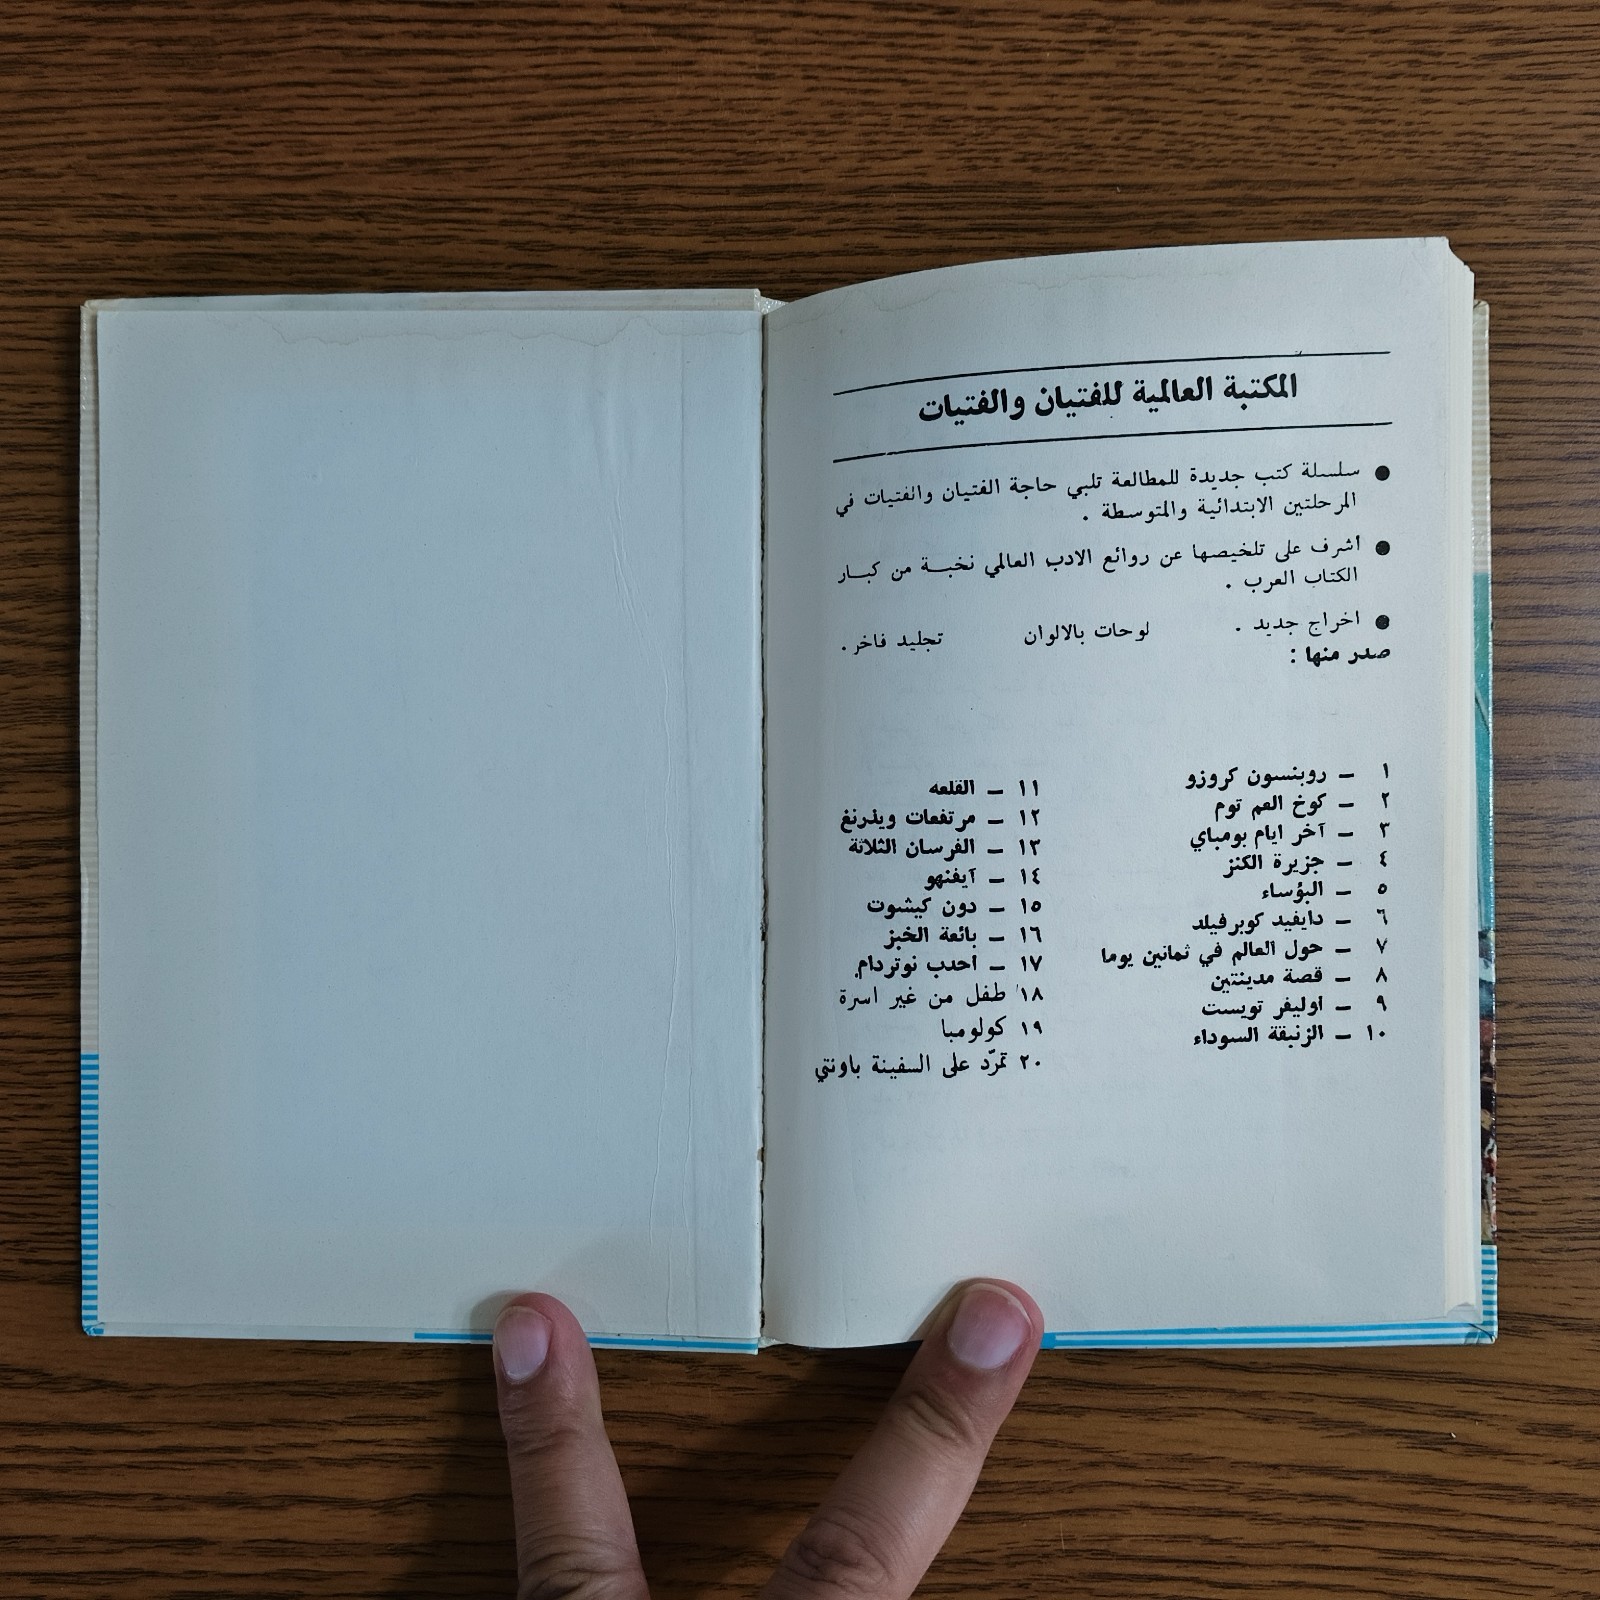 المكتبة العالمية للفتيان والفتيات
● سلسلة كتب جديدة للمطالعة تلبي حاجة الفتيان والفتيات في
المرحلتين الابتدائية والمتوسطة .
● أشرف على تلخيصها عن روائع الادب العالمي نخبة من كبار
الكتاب العرب .
● اخراج جديد . لوحات بالالوان تجليد فاخر .
صدر منها :
١ – روبنسون كروزو
٢ – كوخ العم توم
٣ – آخر ايام بومباي
٤ – جزيرة الكنز
٥ – البؤساء
٦ – دايفيد كوبرفيلد
٧ – حول العالم في ثمانين يوما
٨ – قصة مدينتين
٩ – اوليفر تويست
١٠ – الزنبقة السوداء
١١ – القلعه
١٢ – مرتفعات ويذرنغ
١٣ – الفرسان الثلاثة
١٤ – آيفنهو
١٥ – دون كيشوت
١٦ – بائعة الخبز
١٧ – أحدب نوتردام
١٨ طفل من غير اسرة
١٩ كولومبا
٢٠ تمرّد على السفينة باونتي